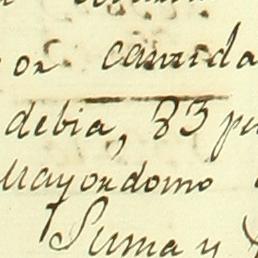 or cantida
debia, 83 p
Mayordomo
Suma y